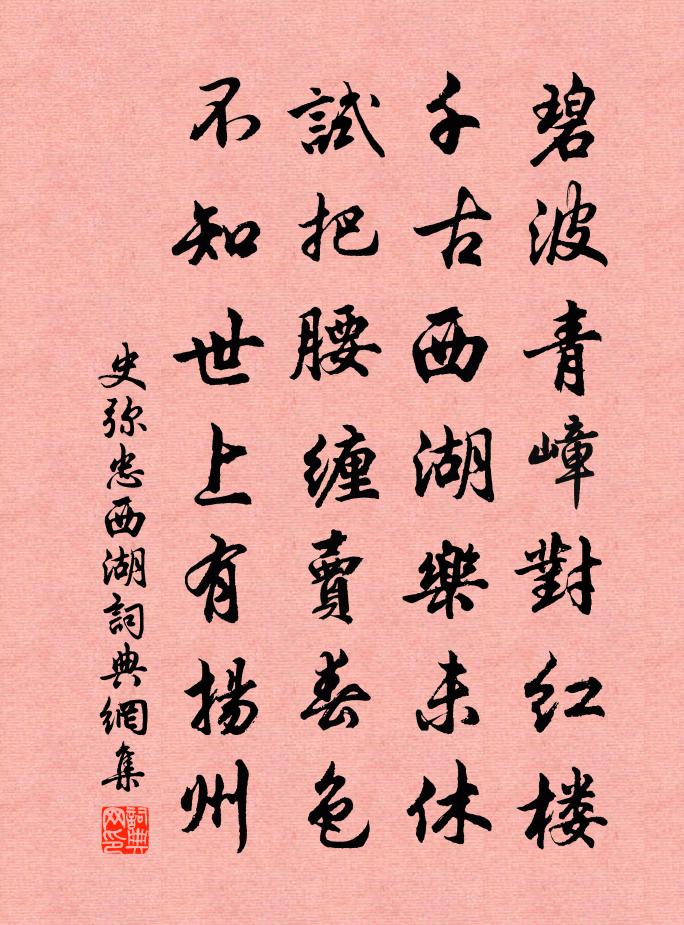 碧波青嶂對红楼
千古西湖樂未休
試把腰纏賣春色
不知世上有揚州
史弥忠西湖詞典網集
詞典网印